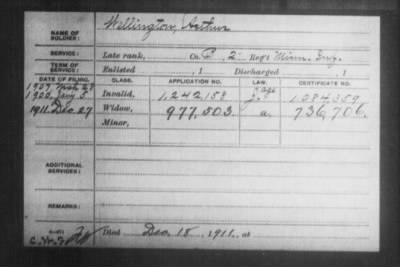 NAME OF SOLDIER: Wellington, Arthur
SERVICE: Late rank, Co. C, 2 Reg't Minn. Inf.
TERM OF SERVICE: Enlisted , 1 Discharged , 1
DATE OF FILING. CLASS. APPLICATION NO. LAW. CERTIFICATE NO.
1907 28 age
1900, 5 Invalid, 1,242,158 1,084,359
1911 Dec 27 Widow, 977,503 a. 736,706.
Minor,
ADDITIONAL SERVICES:
REMARKS:
Died Dec. 18, 1911, at